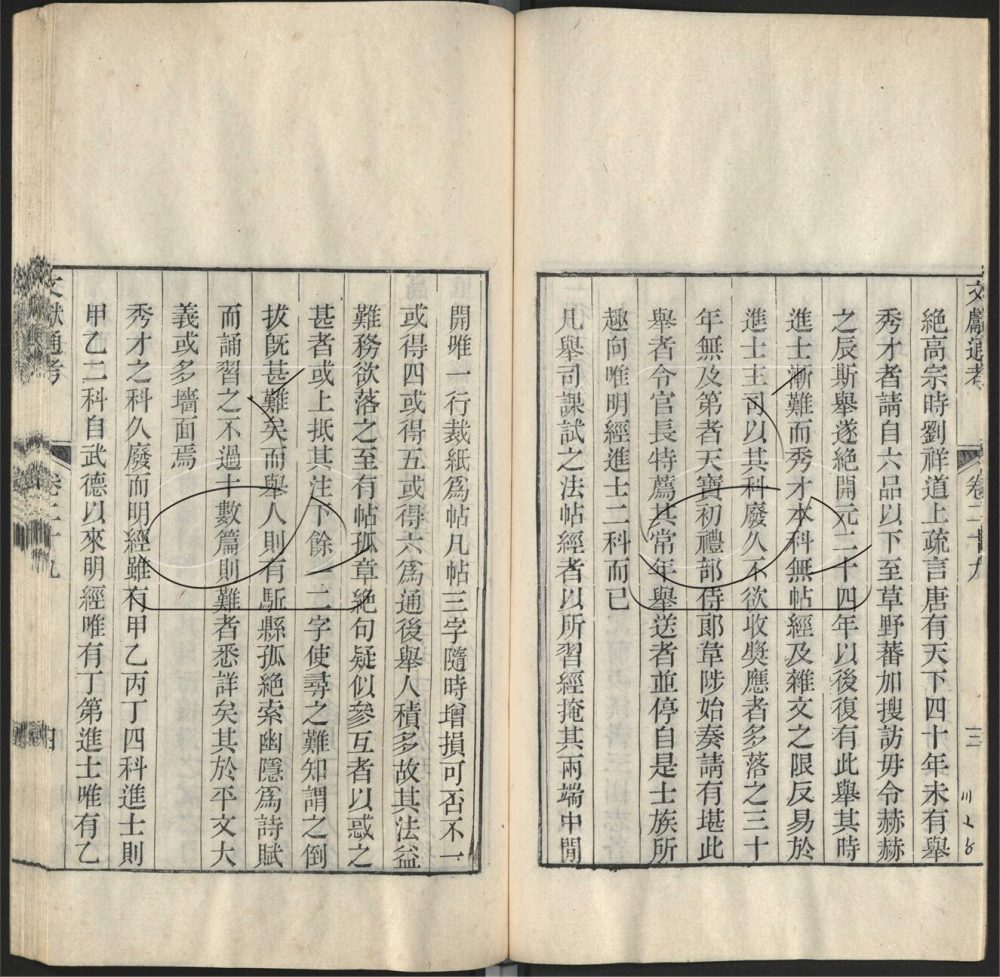 文獻通考 卷二十九 三
絶高宗時劉祥道上疏言唐有天下四十年未有舉
秀才者請自六品以下至草野蕃加搜訪毋令赫赫
之辰斯舉遂絶開元二十四年以後復有此舉其時
進士漸難而秀才本科無帖經及雜文之限反易於
進士主司以其科廢久不欲收奬應者多落之三十
年無及第者天寶初禮部侍郎草陟始奏請有堪此
舉者令官長特薦其常年舉送者並停自是士族所
趣向唯明經進士二科而已
凡舉司課試之法帖經者以所習經掩其兩端中閒
開唯一行裁紙爲帖凡帖三字隨時增損可否不一
或得四或得五或得六爲通後舉人積多故其法益
難務欲落之至有帖孤章絶句疑似參互者以惑之
甚者或上抵其注下餘一二字使尋之難知謂之倒
拔旣甚難矣而舉人則有駈縣孤絶索幽隱爲詩賦
而誦習之不過十數篇則難者悉詳矣其於平文大
義或多墻面焉
秀才之科久廢而明經雖有甲乙丙丁四科進士則
甲乙二科自武德以來明經唯有丁第進士唯有乙
文獻通考 卷二十九 四